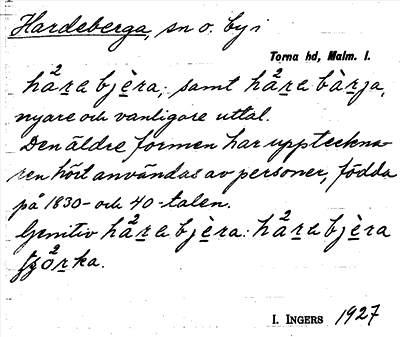 Hardeberga, sn o. by i
Torna hd, Malm. l.
hå²ra bjèra; samt hå²ra bàrja,
nyare och vanligare uttal.
Den äldre formen har uppteckna-
ren hört användas av personer, födda
på 1830- och 40-talen.
Genitiv hå²ra bjèra: hå²ra bjèra
ò²rka.
I. INGERS 1927